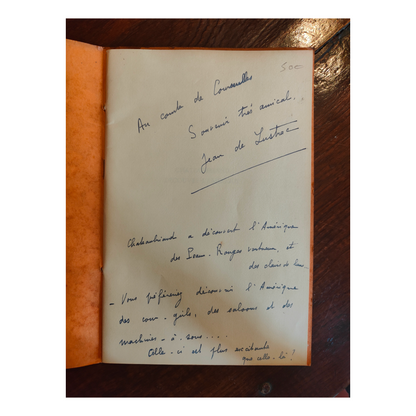 5000
Au comte de Courcelles
Souvenir très amical.
Jean de Lustrac
Chateaubriand a découvert l'Amérique
des Peaux-Rouges vertueux et
des clairs de lune
- Vous préférerez découvrir l'Amérique
des cow-girls, des saloons et des
machines-à-sous....
Celle-ci est plus excitante
que celle-là !